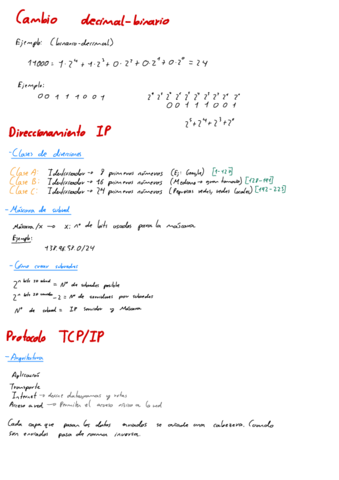 Cambio decimal-binario
Ejemplo: (binario-decimal)
11000 = 1·2⁴ + 1·2³ + 0·2² + 0·2¹ + 0·2⁰ = 24
Ejemplo:
0 0 1 1 1 0 0 1
0 0 1 1 1 0 0 1
2⁵+2⁴+2³+2⁰
Direccionamiento IP
- Clases de direcciones
Clase A: Identificador → 8 primeros números (Ej: Google) [1-127]
Clase B: Identificador → 16 primeros números (Mediano → gran tamaño) [128-191]
Clase C: Identificador → 24 primeros números (Pequeñas redes, redes locales) [192-223]
- Máscara de subred
Máscara /x → x: nº de bits usados para la máscara
Ejemplo:
138.96.58.0/24
- Cómo crear subredes
2^n bits = Nº de subredes posible
2^n bits -2 = Nº de servidores por subredes
Nº de subred = IP servidor y Máscara
Protocolo TCP/IP
- Arquitectura
Aplicación
Transporte
Internet → datagramas y rutas
Acceso a red → Permite el acceso físico a la red
Cada capa que pasan los datos enviados se añade una cabecera. Cuando
son enviados pasa de forma inversa.